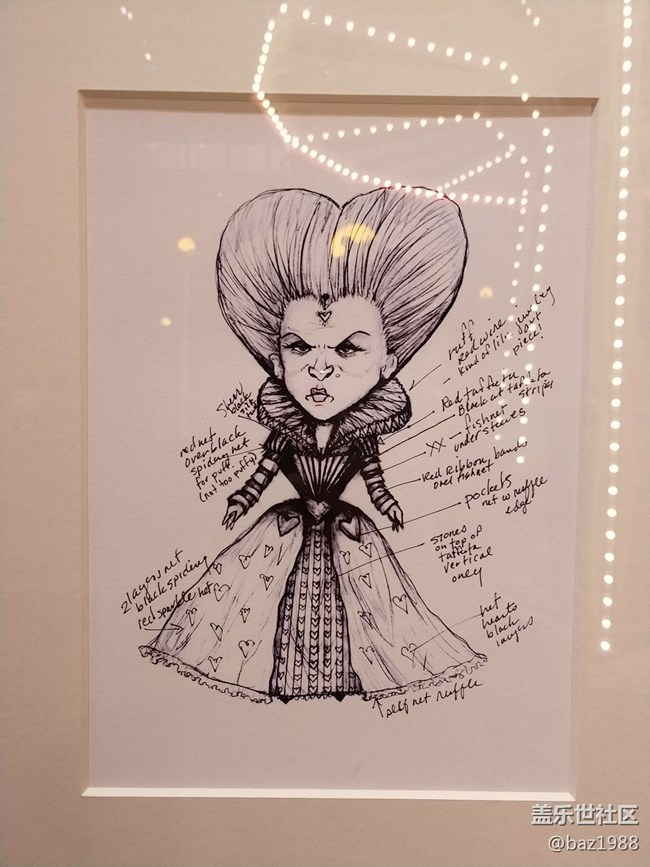 ruff
Red wire
kind of like
piece!
Red taffeta
Black at taffeta
stripes
XX - fishnet
under sleeves
Red Ribbon bands
over fishnet
pockets
net w ruffle
edge
stones
on top of
taffeta
vertical
only
net
hearts
black
layers
self net ruffle
Sheer
black
red net
over black
spider net
for puff
(not too puffy)
2 layers net
black spider
red sparkle net
盖乐世社区
@baz1988